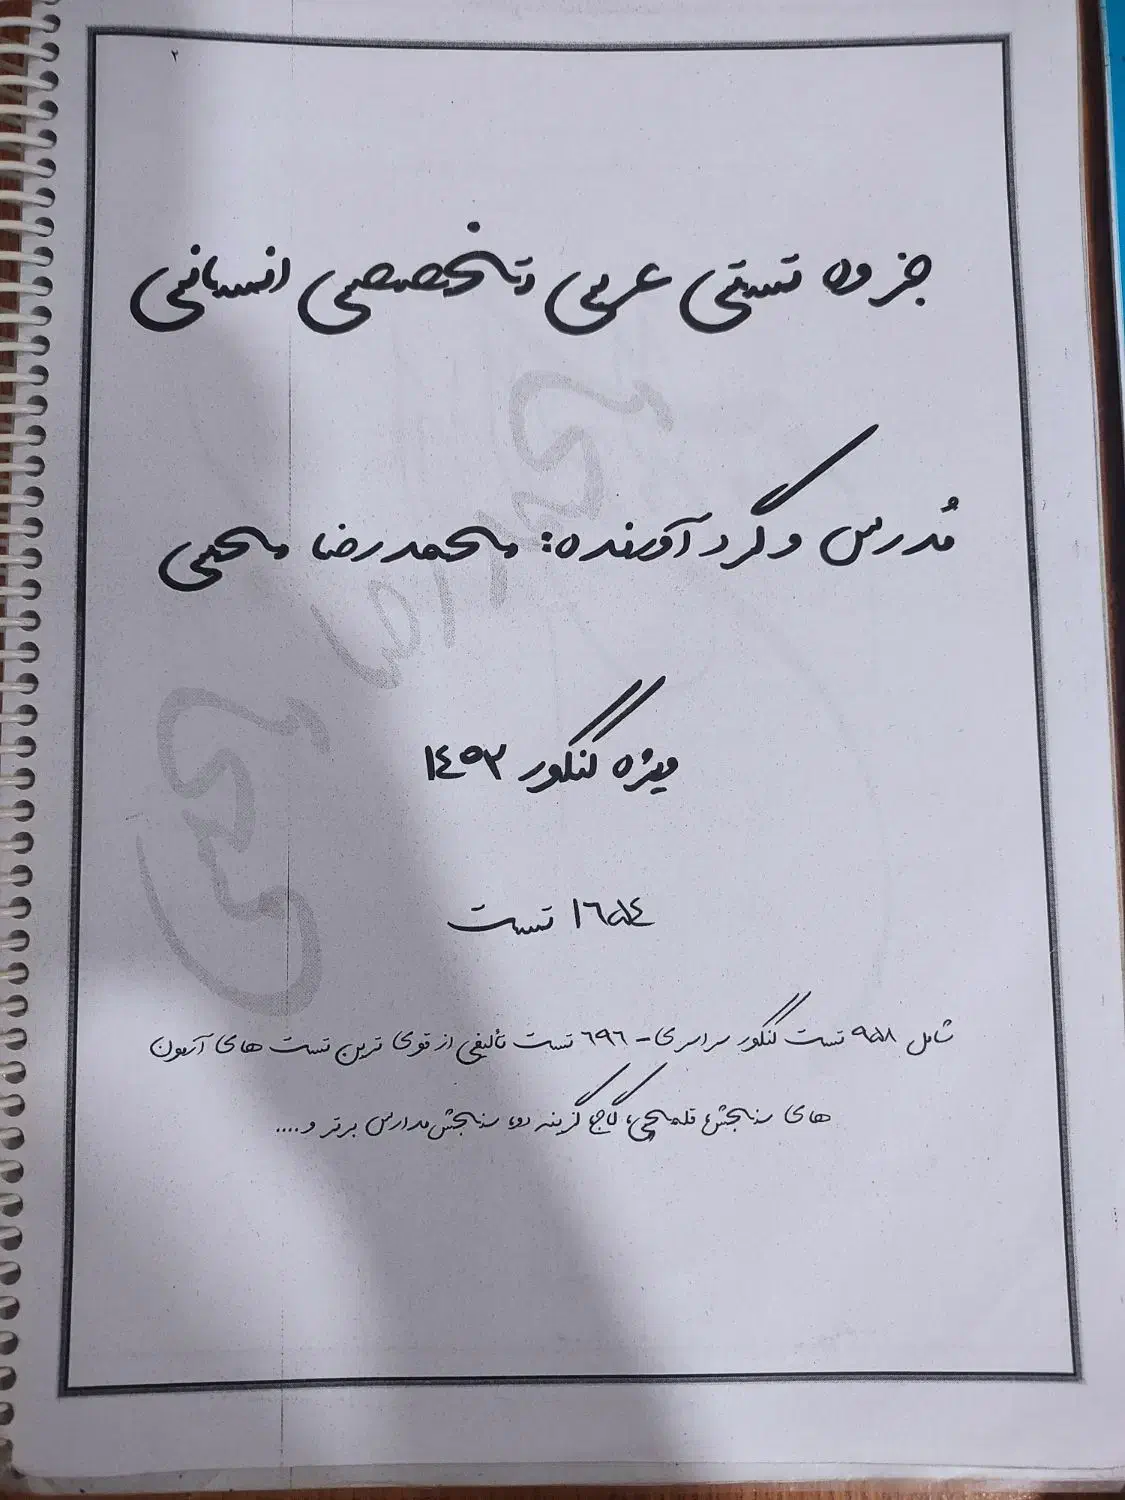 ۲
جزوه تستی عربی تخصصی انسانی
مُدرس و گردآورنده: محمدرضا محبی
ویژه کنکور ۱۴۰۳
۱۶۵۴ تست
شامل ۹۵۸ تست کنکور سراسری - ۶۹۶ تست تألیفی از قوی ترین تست های آزمون
های سنجش، قلمچی، گاج، گزینه دو، سنجش مدارس برتر و....